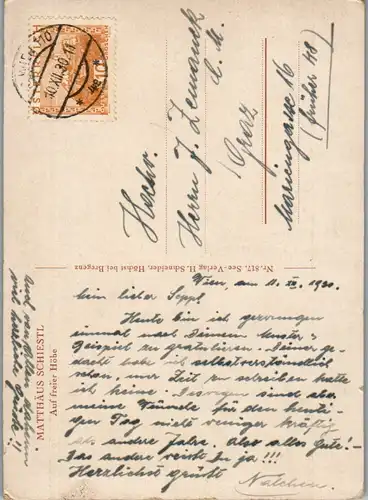 10.XII.30.11
ÖSTERREICH
Hochw.
Herrn J. Zemanek
Graz
Mariengasse 16
(früher 48)
Nr. 817. See-Verlag H. Schneider, Höchst bei Bregenz
MATTHÄUS SCHIESTL
Auf freier Höhe
Wien, am 10. XII. 1930.
Mein lieber Seppl
Heute bin ich gezwungen
einmal nach Deinem Muster-
Beispiel zu gratulieren. Deiner ge-
dacht habe ich selbstverständlich
schon, nur Zeit zu schreiben hatte
ich keine. Deswegen sind aber
meine Wünsche für den heuti-
gen Tag nicht weniger kräftig
als andere Jahre. Also alles Gute!-
Das andere weißt Du ja!!!
Herzlichst grüßt